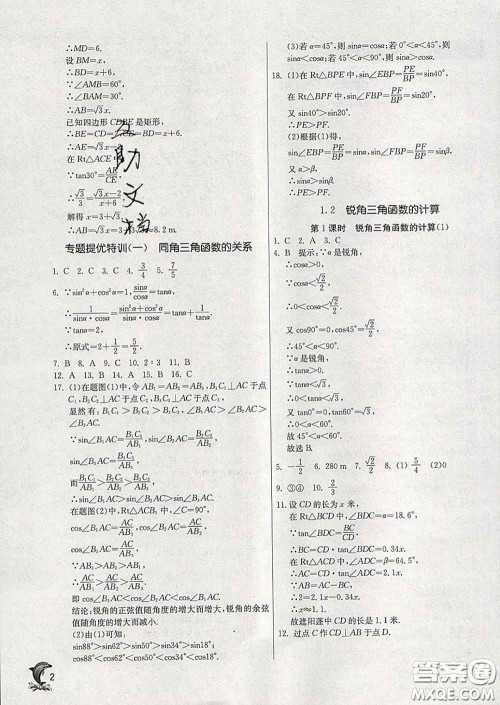 ∴MD=6.
设 BM=x,
∴BD=x+6.
∵∠AMB=60°.
∴∠BAM=30°.
∴AB=√3x.
已知四边形 CDBE 是矩形,
∴AE=√3x-2
在 Rt△ACE 中,
∵tan30°=AE/CE,
∴√3/3=(√3x-2)/(x+6)
解得 x=3+√3.
专题提优特训(一) 同角三角函数的关系
1. C 2. C 3. C 4. 3/4 5. 7/5
6. ∵sin²α+cos²α=1, sinα/cosα=tanα,
∴1/(sinα·cosα)=(sin²α+cos²α)/(sinα·cosα)=tanα+1/tanα.
∵tanα=2,
∴原式=2+1/2=5/2.
7. B 8. A 9. C 10. 2∶3 11. B
12. A 13. A 14. B 15. B 16. C
17. (1)在题图(1)中,令 AB₁=AB₂=AB₃,B₁C₁⊥AC 于点
C₁,B₂C₂⊥AC 于点 C₂,B₃C₃⊥AC 于点 C₃,
显然有:B₁C₁>B₂C₂>B₃C₃,∠B₁AC>∠B₂AC>
∠B₃AC.
∵sin∠B₁AC=B₁C₁/AB₁,
sin∠B₂AC=B₂C₂/AB₂,
sin∠B₃AC=B₃C₃/AB₃,
而B₁C₁/AB₁>B₂C₂/AB₂>B₃C₃/AB₃,
∴sin∠B₁AC>sin∠B₂AC>sin∠B₃AC.
在题图(2)中,
cos∠B₁AC=AC/AB₁,
cos∠B₂AC=AC/AB₂,
cos∠B₃AC=AC/AB₃,
∵AB₃>AB₂>AB₁,
∴AC/AB₁>AC/AB₂>AC/AB₃,
即 cos∠B₁AC>cos∠B₂AC>cos∠B₃AC.
结论:锐角的正弦值随角度的增大而增大,锐角的余弦
值随角度的增大而减小.
(2)由(1)可知
sin88°>sin62°>sin50°>sin34°>sin18°;
cos88°<cos62°<cos50°<cos34°<cos18°.
2
(3)若α=45°,则 sinα=cosα;若 0°<α<45°,则
sinα<cosα;若 45°<α<90°,则 sinα>cosα.
18. (1)在 Rt△BPE 中,sin∠EBP=PE/BP=sin40°.
在 Rt△BPF 中,sin∠FBP=PF/BP=sin20°,
又 sin40°>sin20°,
∴PE>PF.
(2)根据(1)得,
sin∠EBP=PE/BP=sinα,sin∠FBP=PF/BP=sinβ.
又∵α>β,
∴sinα>sinβ.
∴PE>PF.
1.2 锐角三角函数的计算
第 1 课时 锐角三角函数的计算(1)
1. C 2. A 3. C
4. B 提示:∵α是锐角,
∴cosα>0,
∵cosα<√2/2,
∴0<cosα<√2/2.
又 cos90°=0,cos45°=√2/2,
∴45°<α<90°.
∵α是锐角,
∴tanα>0,
∵tanα<√3,
∴0<tanα<√3.
又 tan0°=0,tan60°=√3,
∴0<α<60°.
故 45°<α<60°.
故选 B.
5. -1/2 6. 280 m 7. √2/2 8. (1)√5/4 (2)0
9. ③④ 10. 2/3
11. 设 CD 的长为 x 米,
在 Rt△BCD 中,∠BDC=α=18.6°,
∵tan∠BDC=BC/CD,
∴BC=CD·tan∠BDC≈0.34x.
在 Rt△ACD 中,∠ADC=β=64.5°,
∴AC=CD·tan∠ADC≈2.1x.
∵AB=AC-BC,
∴2=2.1x-0.34x.
∴x≈1.1.
故遮阳蓬中 CD 的长是 1.1 米.
12. 过点 C 作 CD⊥AB 于点 D.
助
文
档
答案圈
MXQE.COM